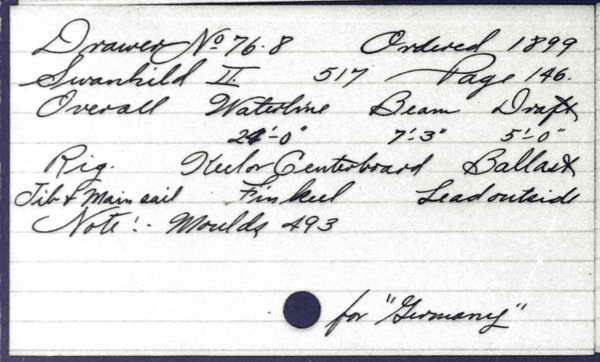 Drawer No 76.8 Ordered 1899
Swanhild II. 517 Page 146.
Overall Waterline Beam Draft
24'-0" 7'-3" 5'-0"
Rig. Keel or Centerboard Ballast
Jib & Mainsail Fin keel Lead outside
Note:- Moulds 493
for "Germany"